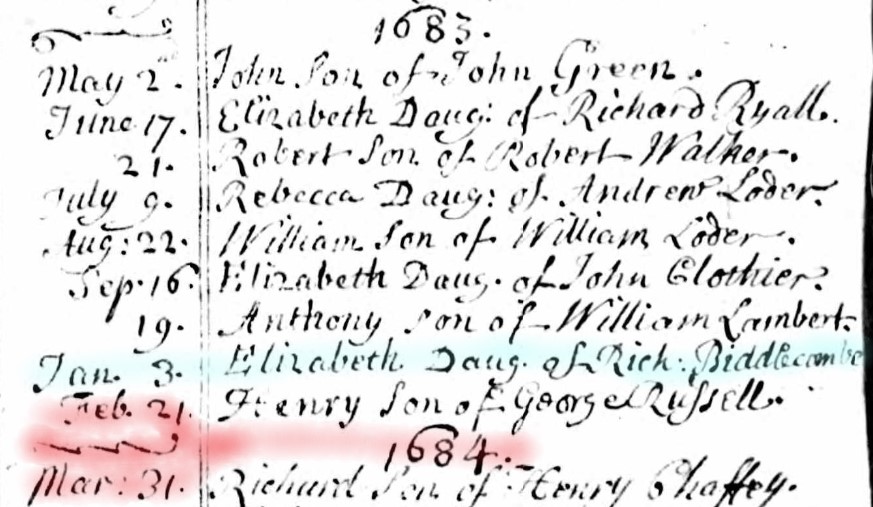 1683.
May 2. John Son of John Green.
June 17. Elizabeth Daug: of Richard Ryall.
21. Robert Son of Robert Walker.
July 9. Rebecca Daug: of Andrew Loder.
Aug: 22. William Son of William Loder.
Sep. 16. Elizabeth Daug. of John Clothier.
19. Anthony Son of William Lambert.
Jan. 3. Elizabeth Daug. of Rich: Biddlecombe
Feb. 21. Henry Son of George Russell.
1684.
Mar: 31. Richard Son of Henry Chaffey.